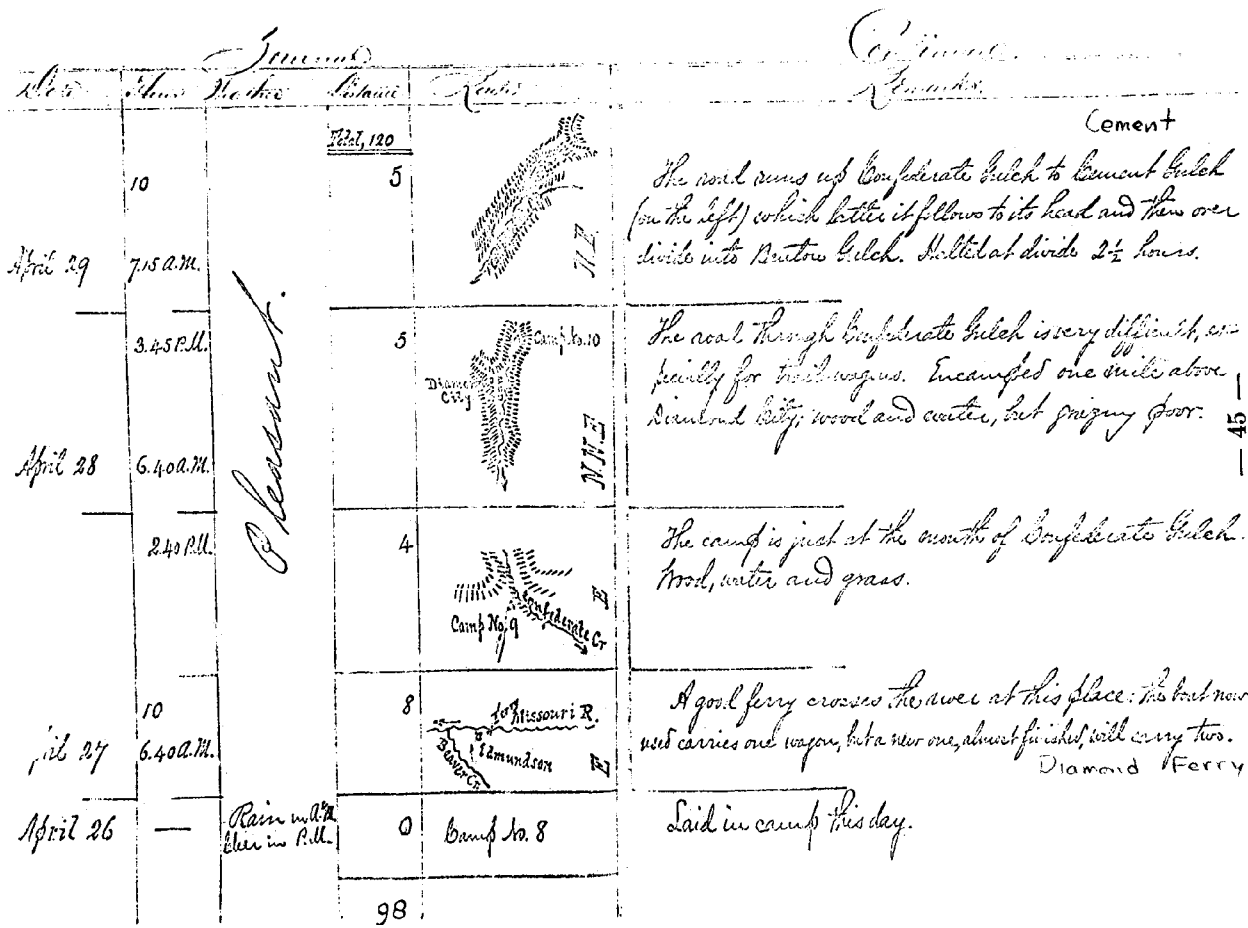 Journal
Continued.
Date Hour Weather Distance Route Remarks.
Total, 120
Cement
10
5
The road runs up Confederate Gulch to Cement Gulch
(on the left) which latter it follows to its head and then over
divide into Benton Gulch. Halted at divide 2½ hours.
April 29
7.15 A.M.
N E
Pleasant.
3.45 P.M.
5
Camp No. 10
Diamond City
N N E
The road through Confederate Gulch is very difficult, es-
pecially for trail-wagons. Encamped one mile above
Diamond City; wood and water, but grazing poor.
— 45 —
April 28
6.40 A.M.
2.40 P.M.
4
Camp No. 9
Confederate Cr
E
The camp is just at the mouth of Confederate Gulch.
Wood, water and grass.
10
8
Missouri R.
Edmundson
Beaver Cr.
E
A good ferry crosses the river at this place: the boat now
used carries one wagon, but a new one, almost finished, will carry two.
Diamond Ferry
ril 27
6.40 A.M.
April 26
—
Rain in A.M.
Clear in P.M.
0
Camp No. 8
Laid in camp this day.
98